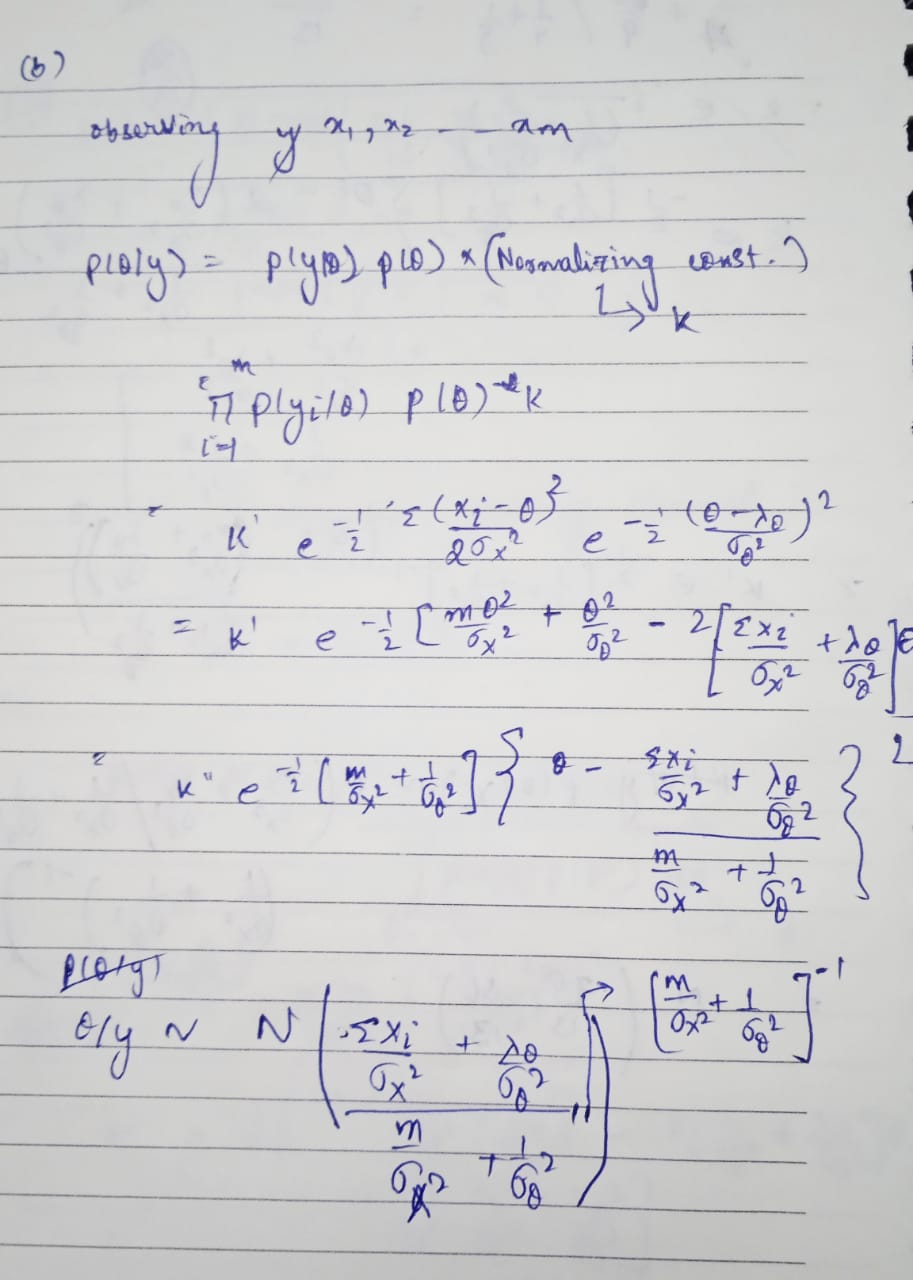 (b)
observing y x₁, x₂ -- -- xm
p(θ/y) = p(y/θ) p(θ) × (Normalizing const.)
↳ K
m
π p(yi/θ) p(θ) K
i=1
= K' e^{-1/2 Σ(xi-θ)²/2σx²} e^{-1/2 (θ-λθ)²/σθ²}
= K' e^{-1/2 [mθ²/σx² + θ²/σθ² - 2[Σxi/σx² + λθ/σθ²]θ}
= K'' e^{-1/2 [m/σx² + 1/σθ²] {θ - (Σxi/σx² + λθ/σθ²)/(m/σx² + 1/σθ²)}²}
p(θ/y)
θ/y ~ N ((Σxi/σx² + λθ/σθ²)/(m/σx² + 1/σθ²), [m/σx² + 1/σθ²]⁻¹)